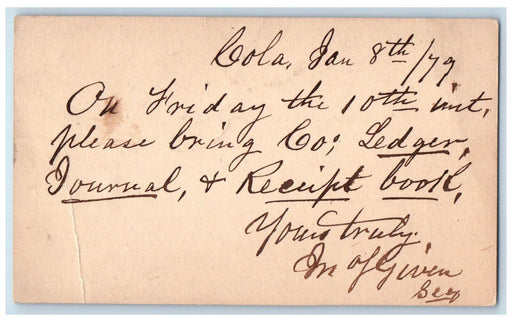 Cola, Jan 8th/79
On Friday the 10th inst,
please bring Co; Ledger,
Journal, & Receipt book,
Yours truly,
Given
Secy